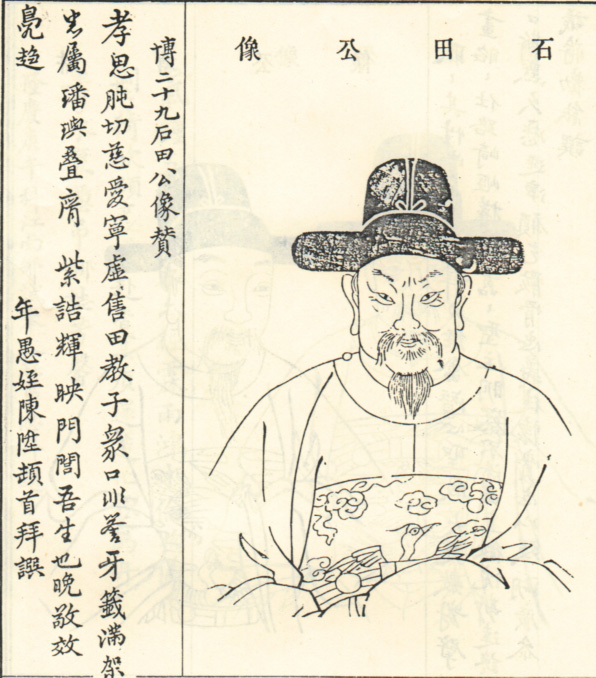 石田公像
博二十九石田公像贊
孝思肫切慈愛寧虛售田教子衆口牙籤滿架
屬璠璵叠膺 紫誥輝映門閭吾生也晚敬效
鳧趋
年愚姪陳陞頓首拜譔